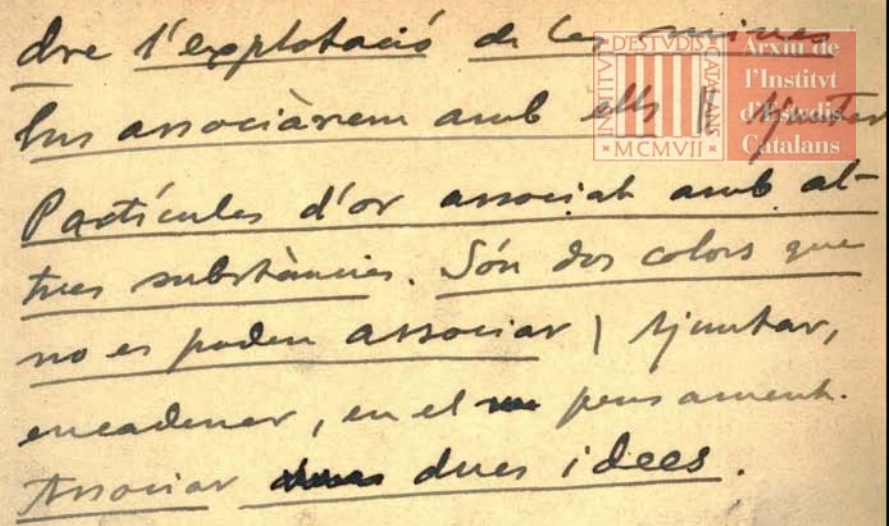 dre l'explotació de les mines
Ens associàrem amb ells | Ajuntar
Partícules d'or associat amb al-
tres substàncies. Són dos colors que
no es poden associar | Ajuntar,
encadenar, en el pensament.
Associar dues idees.
INSTITVT D'ESTVDIS CATALANS
MCMVII
Arxiu de
l'Institvt
d'Estvdis
Catalans